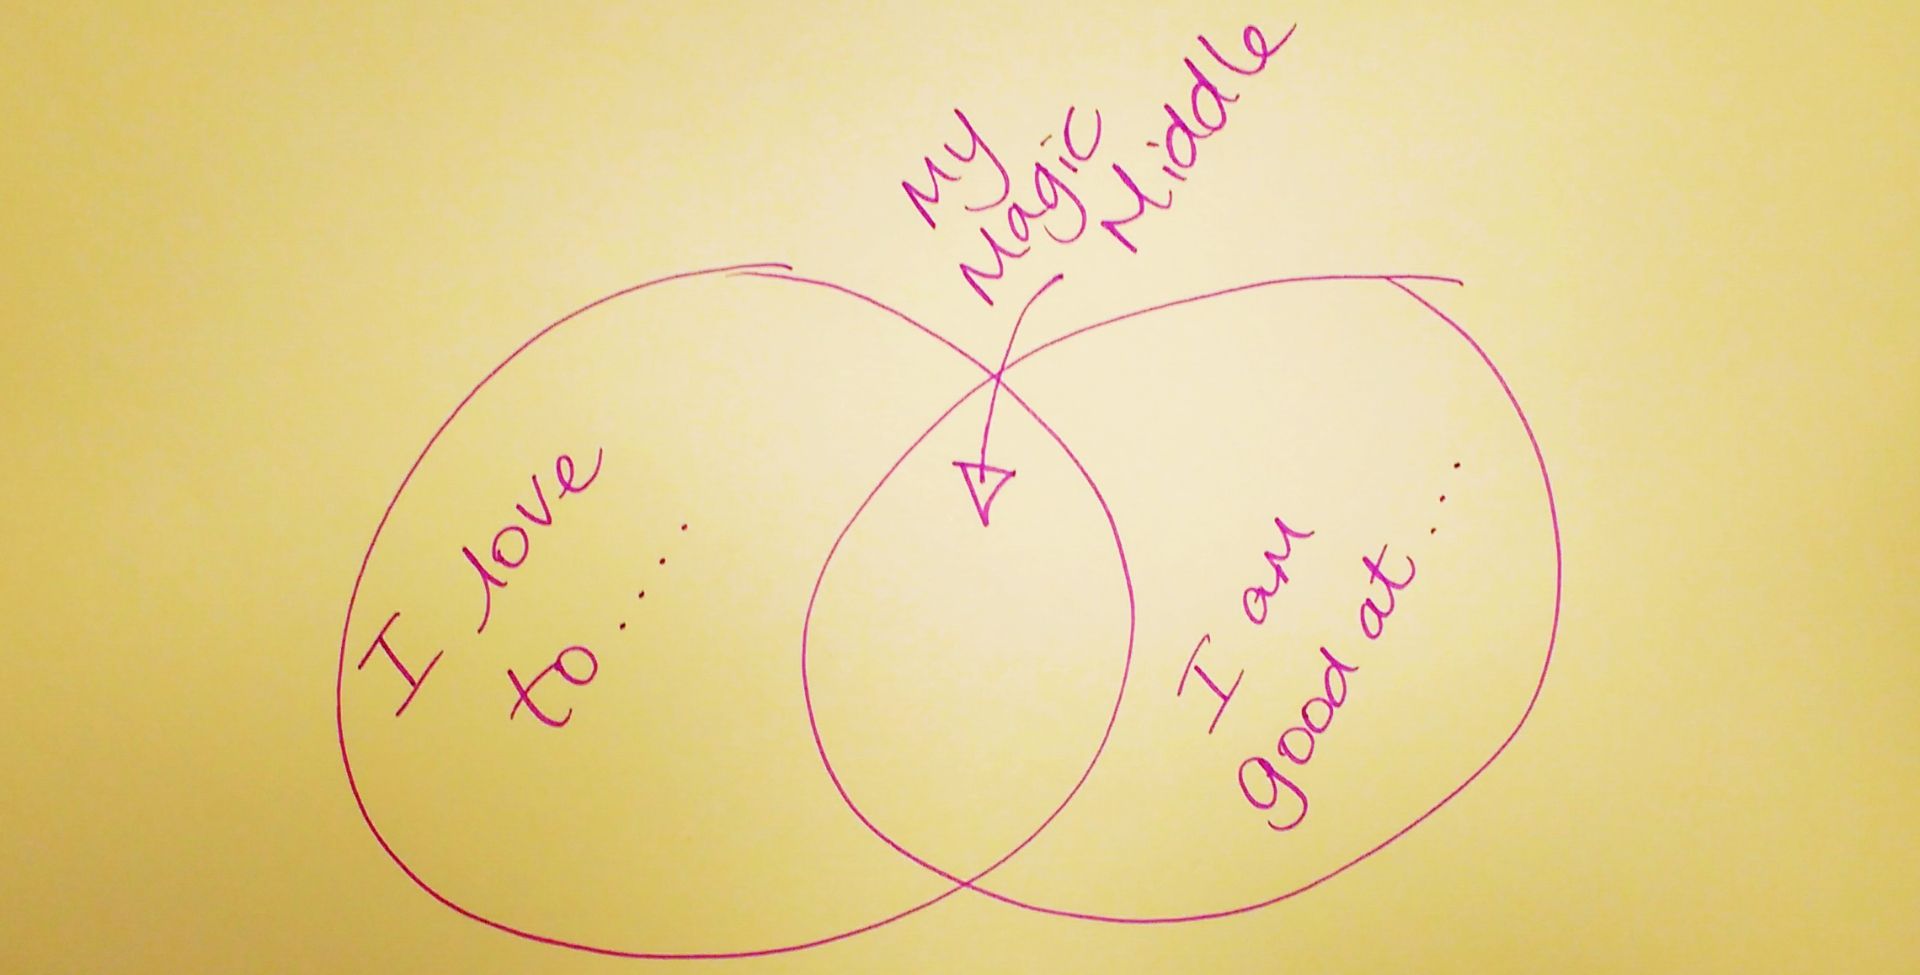 My
Magic
Middle
I love
to....
I am
good at...